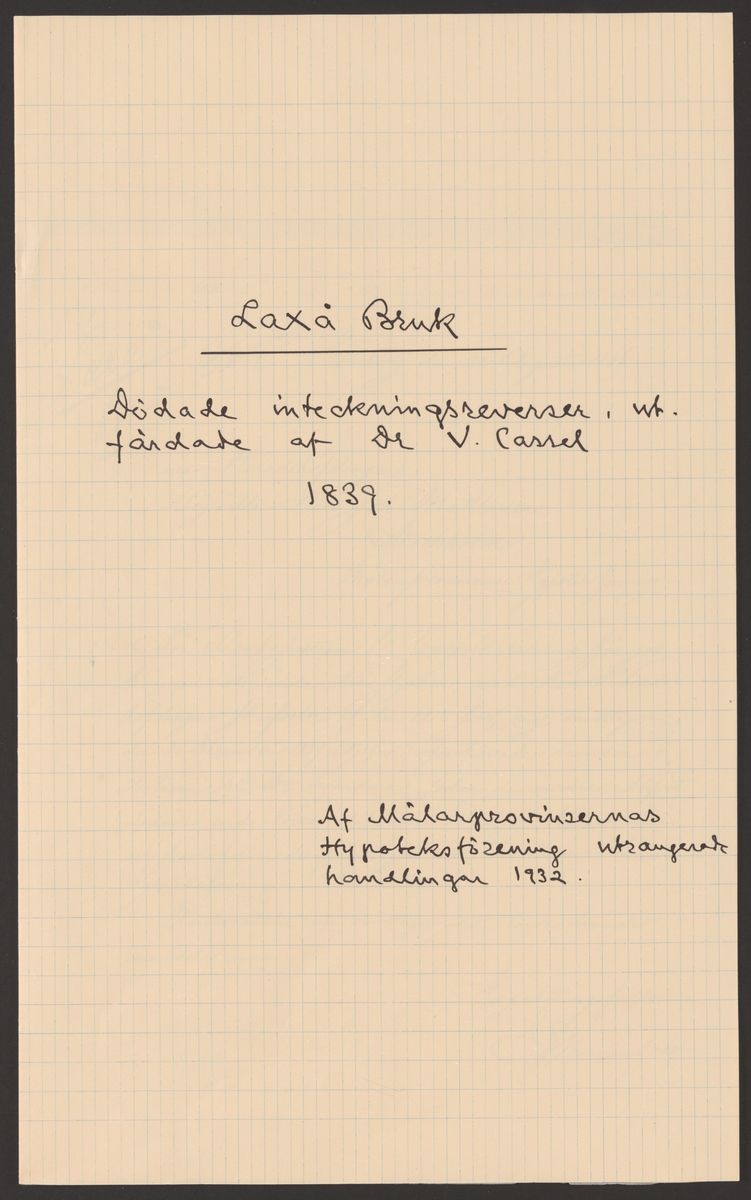 Laxå Bruk
Dödade inteckningsreverser, ut.
färdade af Dr V. Cassel
1839.
Af Mälarprovinsernas
Hypoteksförening utrangerade
handlingar 1932.